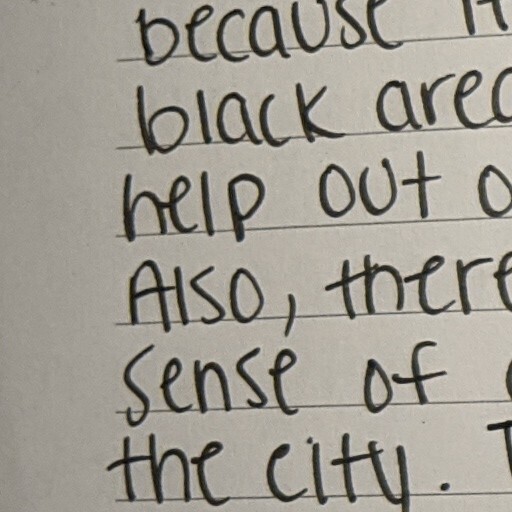 because it
black area
help out
Also, there
sense of
the city.